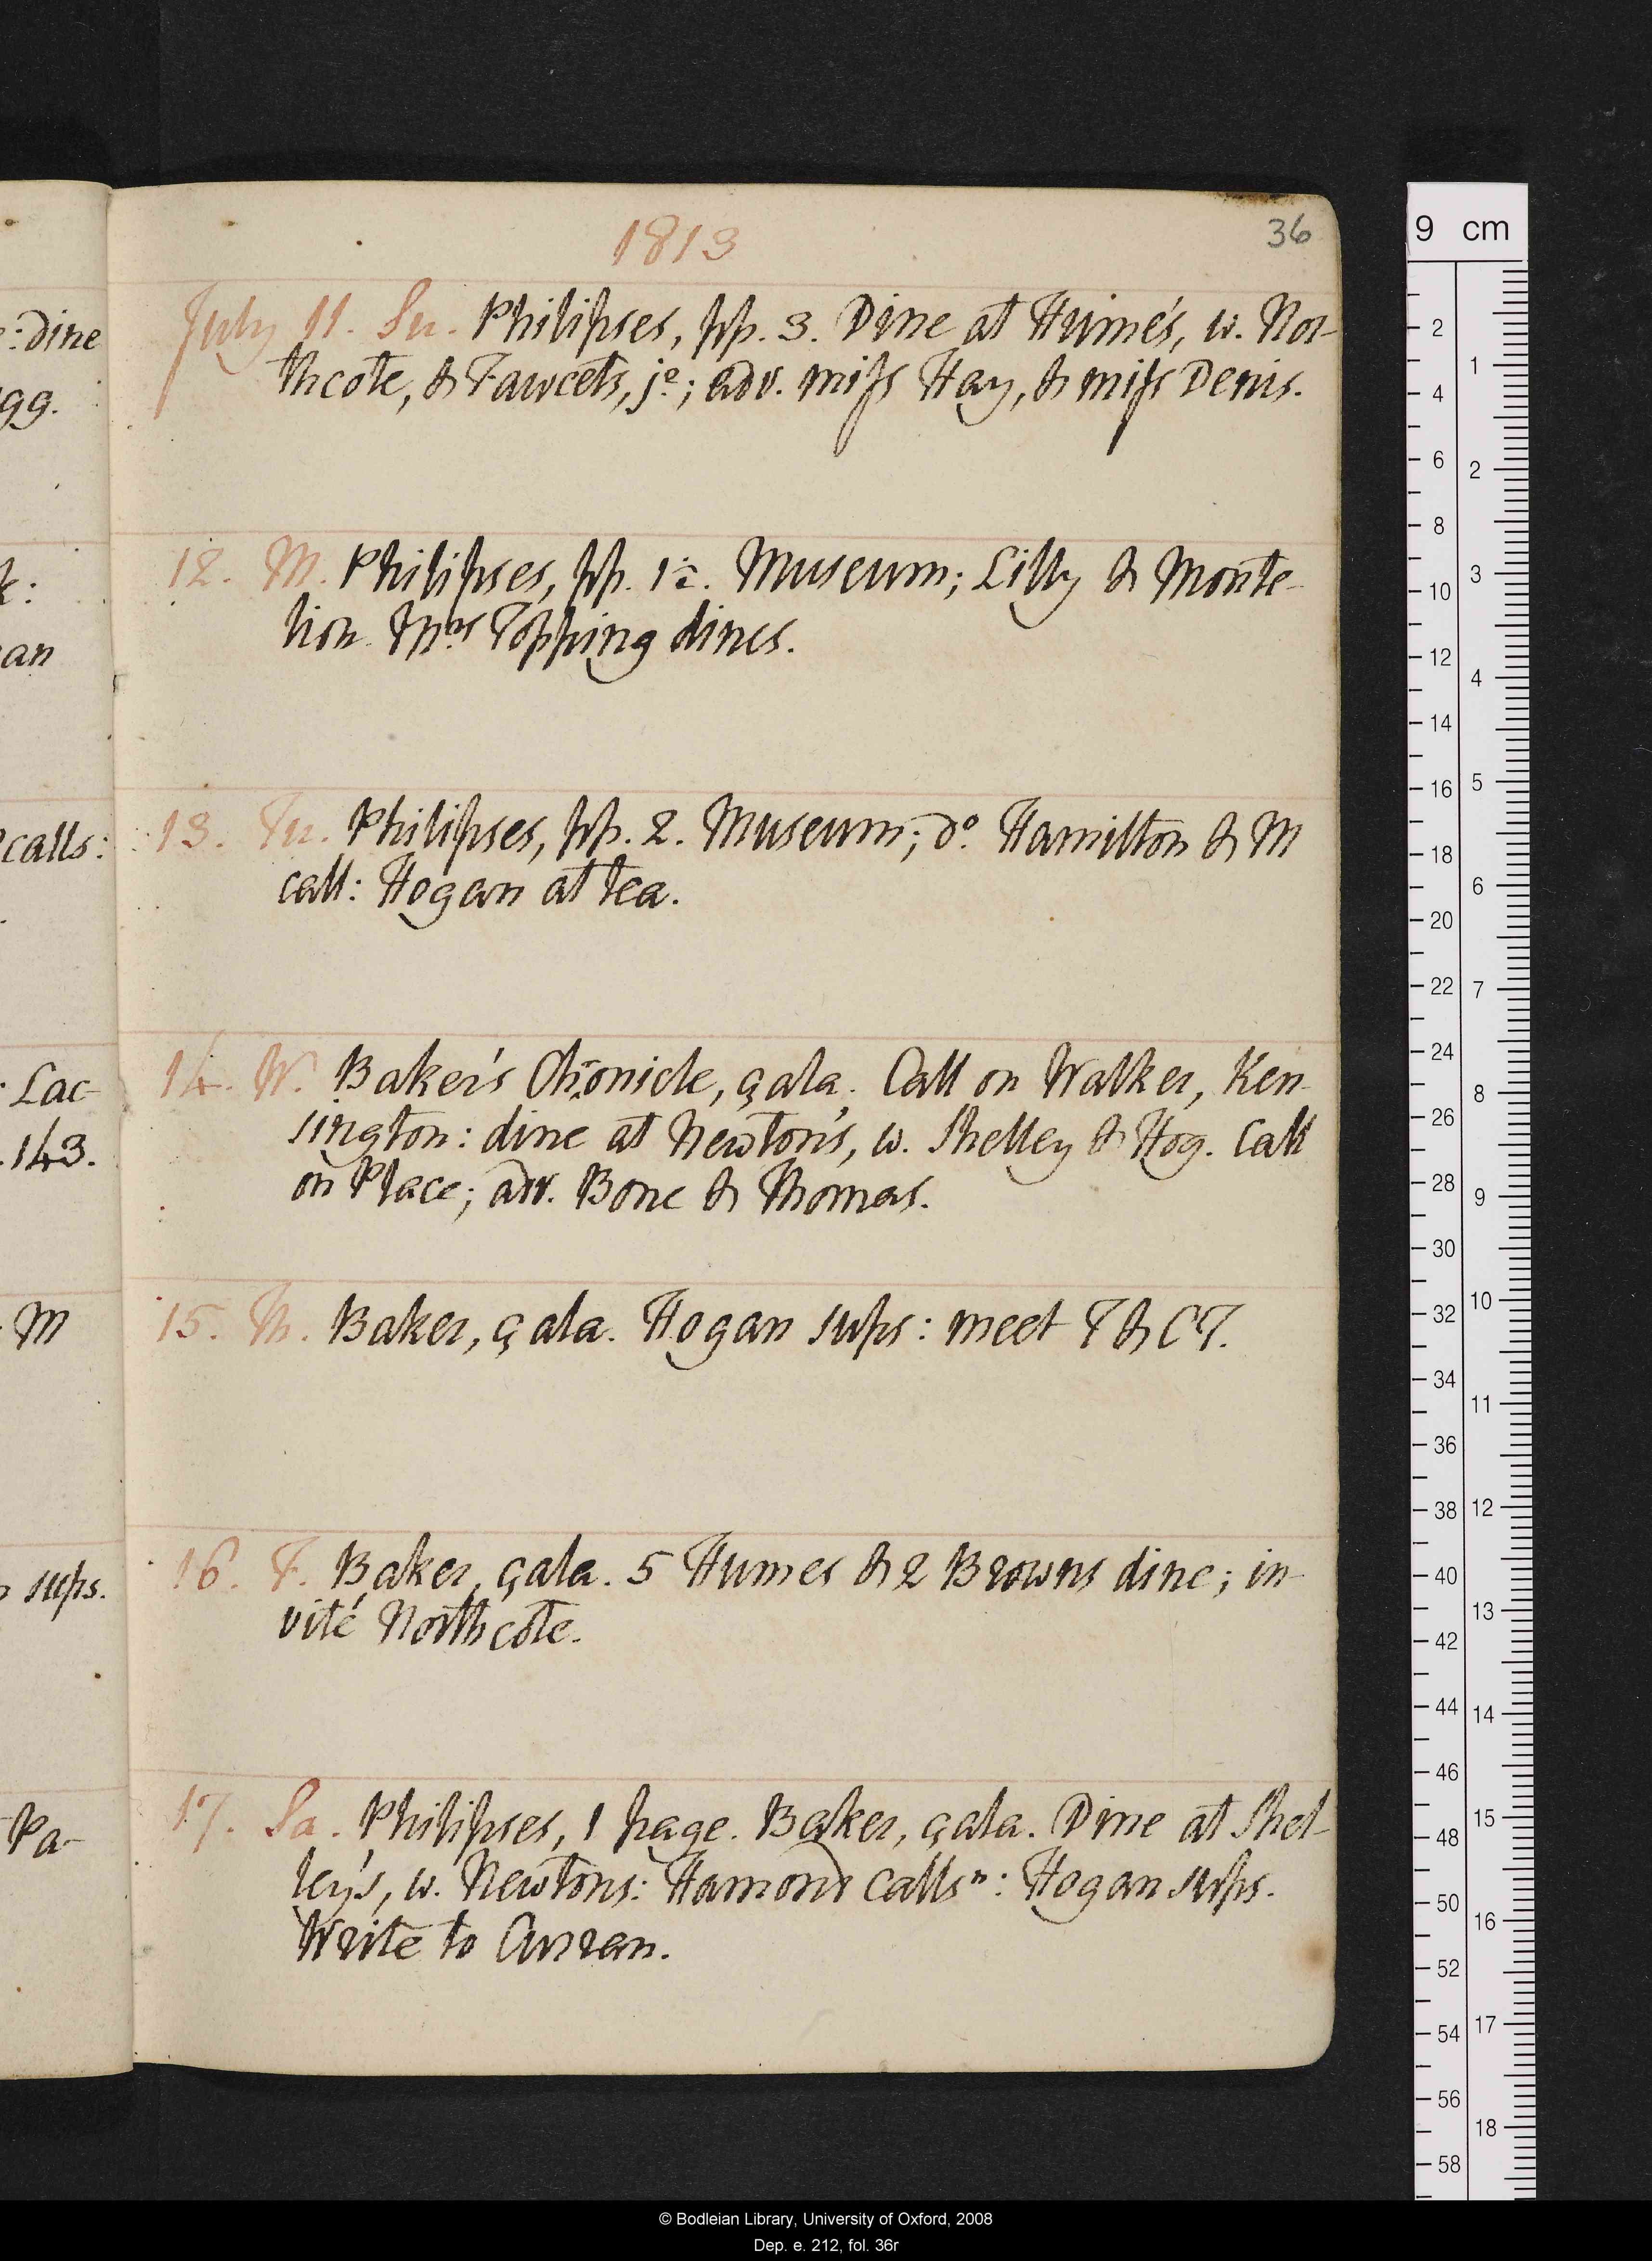 1813
36
July 11. Su. Philipses, pp. 3. Dine at Hume's, w. Nor-
thcote, & Fawcets, jº; adv. miſs Hay, & miſs Denis.
12. M. Philipses, pp. 1½. Museum; Lilly & Monte-
lion. Topping dines.
13. Tu. Philipses, pp. 2. Museum; dº. Hamilton & M
call: Hogan at tea.
14. W. Baker's Chronicle, çala. Call on Walker, Ken-
sington: dine at Newton's, w. Shelley & Hog. Call
on Place; adv. Bone & Thomas.
15. Th. Baker, çala. Hogan sups: meet T & CT.
16. F. Baker, çala. 5 Humes & 2 Browns dine; in-
vité Northcote.
17. Sa. Philipses, 1 page. Baker, çala. Dine at Shel-
ley's, w. Newtons: Hamond callsⁿ: Hogan sups.
Write to Curran.
: dine
gg.
k:
an
calls:
Lac-
143.
M
sups.
Pa-
9 cm
2
4
6
8
10
12
14
16
18
20
22
24
26
28
30
32
34
36
38
40
42
44
46
48
50
52
54
56
58
1
2
3
4
5
6
7
8
9
10
11
12
13
14
15
16
17
18
© Bodleian Library, University of Oxford, 2008
Dep. e. 212, fol. 36r